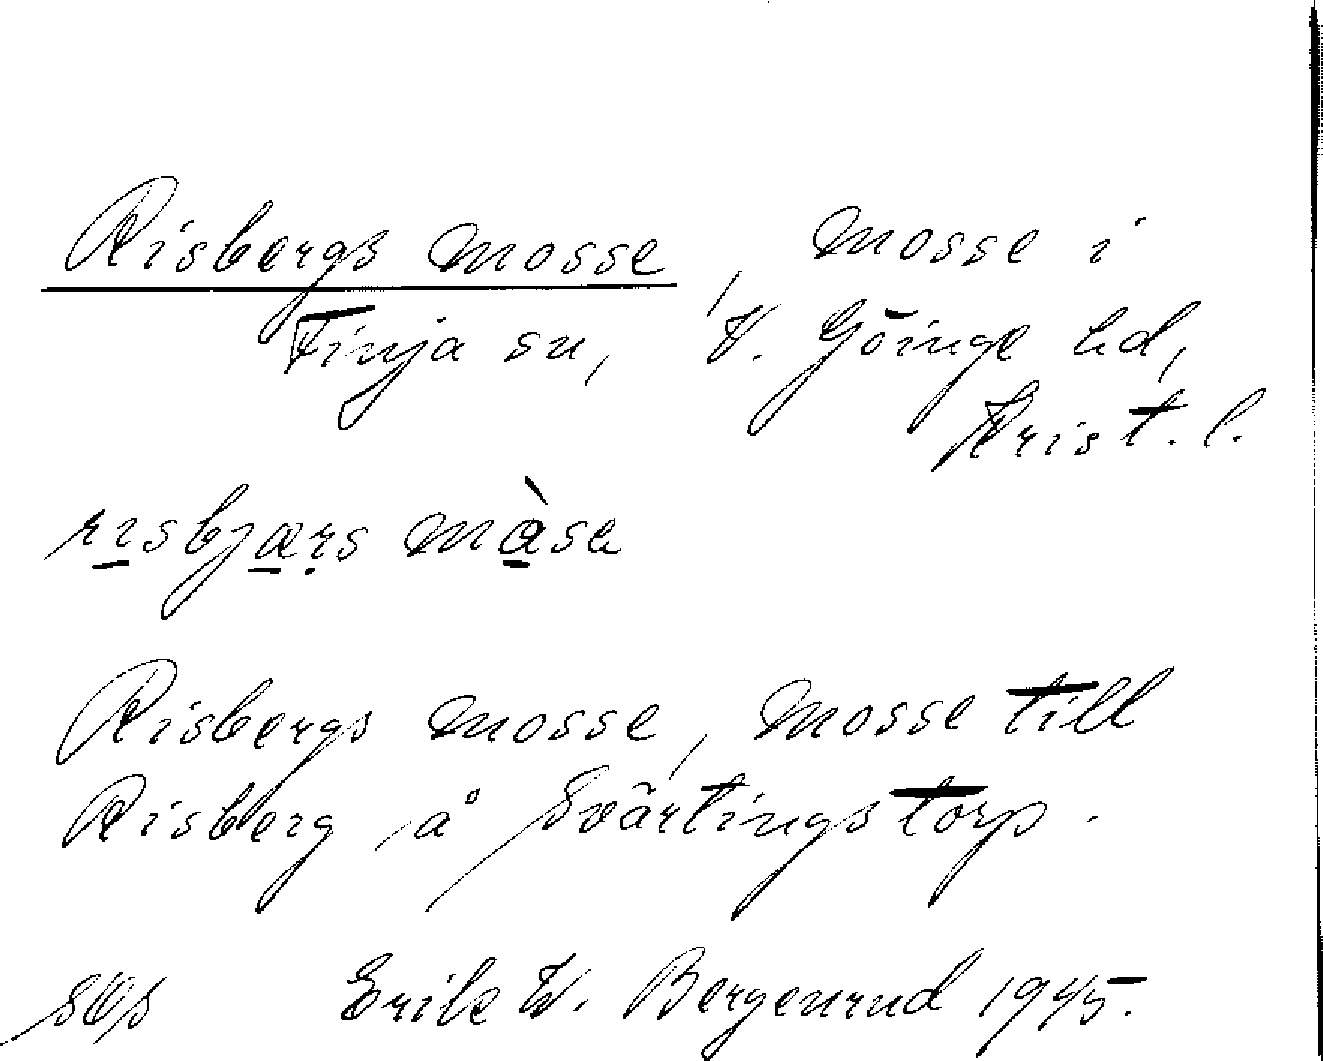 Risbergs mosse, mosse i
Finja sn, V. Göinge hd,
Krist. l.
rɪsbjæṛs màsa
Risbergs mosse, mosse till
Risberg å Svärtingstorp.
Erik W. Bergenrud 1945.